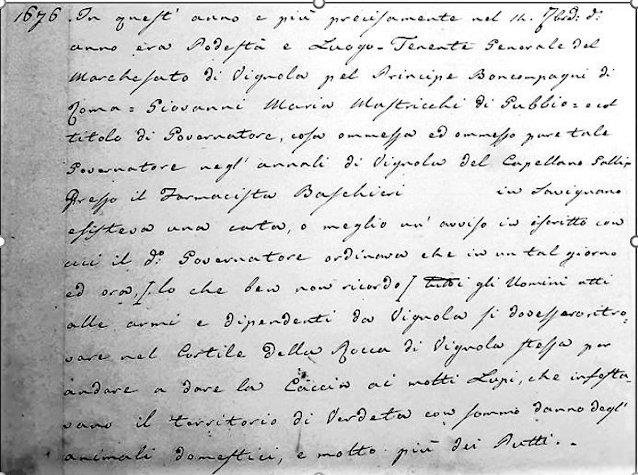 1676 In quest' anno e più precisamente nel 14. 7bre d.o
anno era Podestà e Luogo-Tenente Generale del
Marchesato di Vignola pel Principe Boncompagni di
Roma = Giovanni Maria Mastricchi di Gubbio = col
titolo di Governatore, cosa ommessa ed ommesso pure tale
Governatore negl' annali di Vignola del Capellano
Presso il Farmacista Baschieri in Savignano
esisteva una carta, o meglio un' avviso in iscritto con
cui il d.o Governatore ordinava che in un tal giorno
ed ora, [lo che ben non ricordo] tutti gli Uomini atti
alle armi e dipendenti da Vignola si dovessero ritro-
vare nel Cortile della Rocca di Vignola stessa per
andare a dare la Caccia ai molti Lupi, che infesta-
vano il territorio di Verdeta con sommo danno degl'
animali domestici, e molto più dei Putti. -